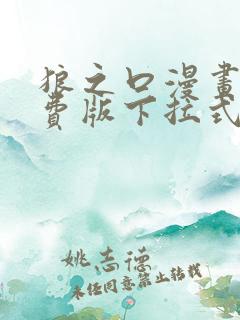 狼之口漫畫
費版下拉式
姚志德
未经同意禁止转载